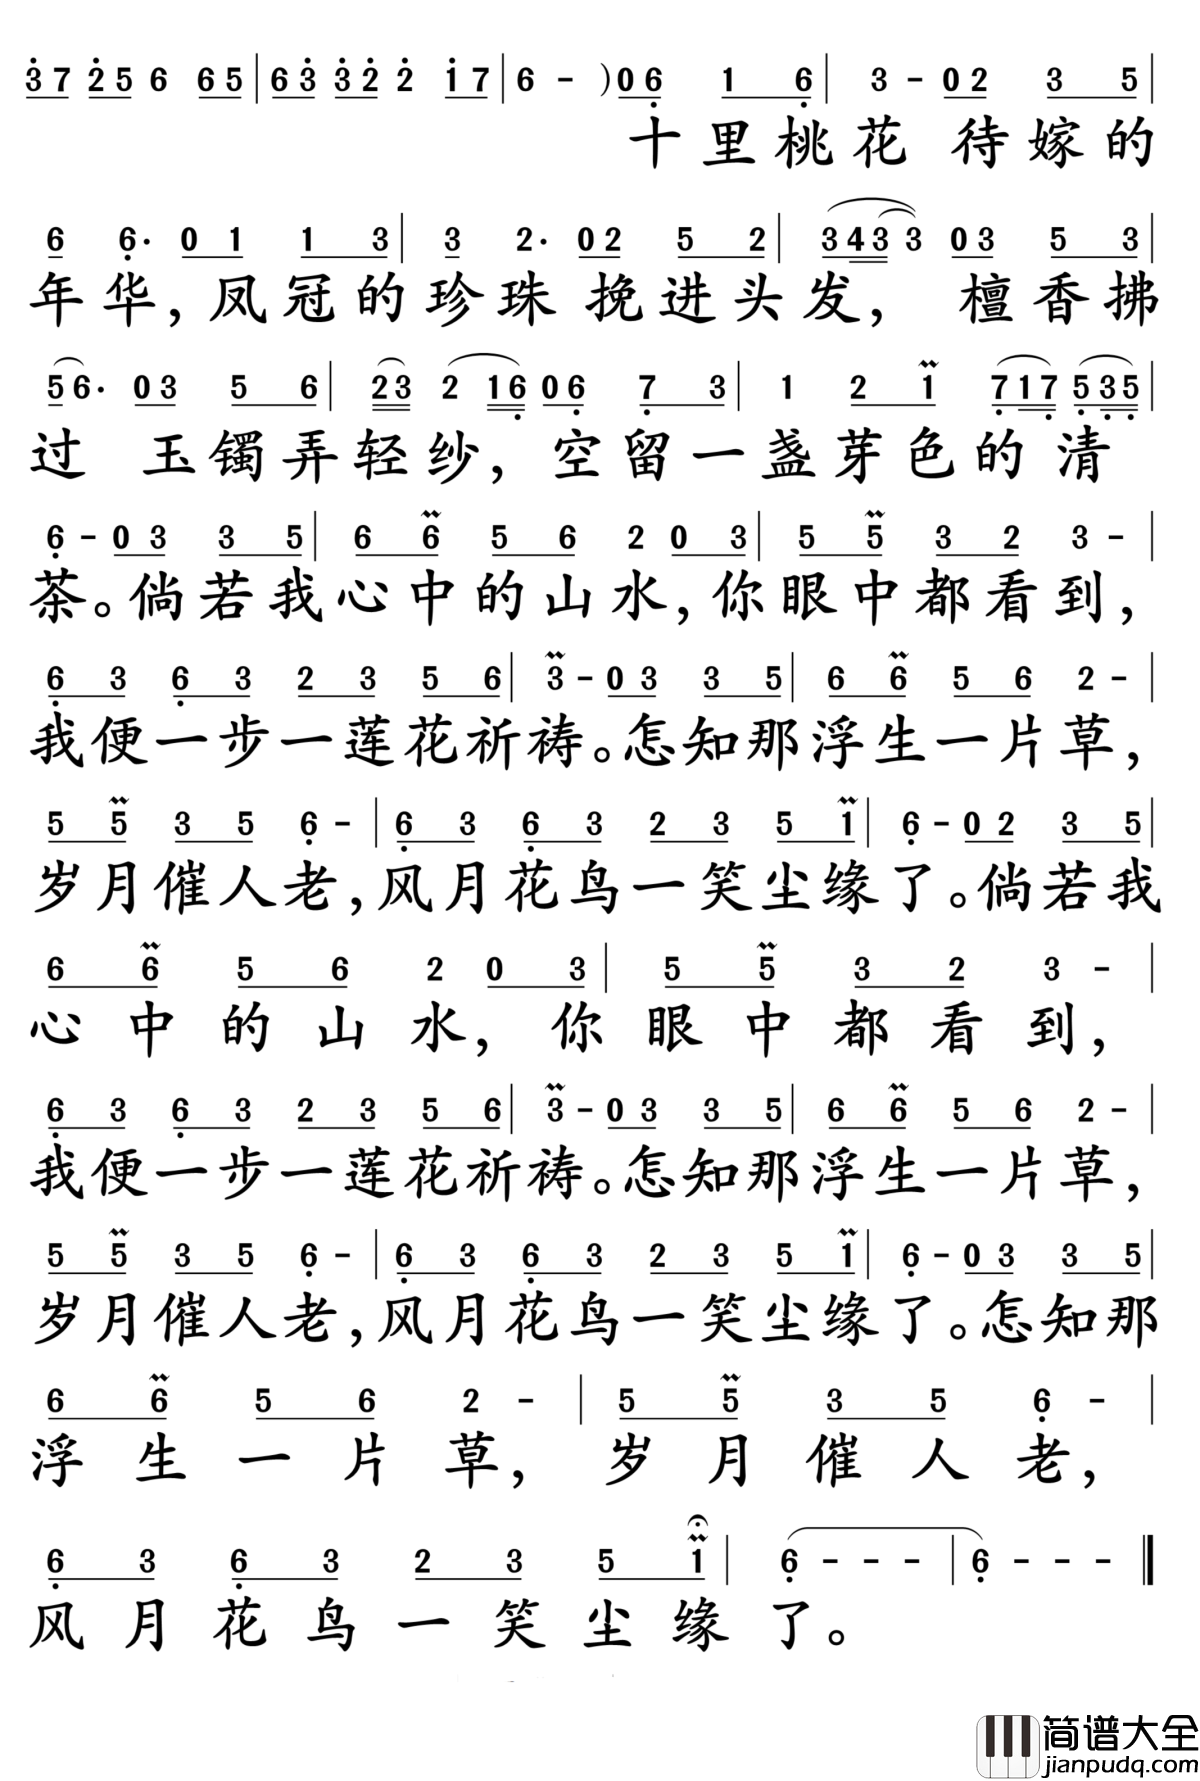 3 7 2 5 6 6 5 | 6 3 3 2 2 1 7 | 6 - ) 0 6 1 6 | 3 - 0 2 3 5 |
十里桃花 待嫁的
6 6· 0 1 1 3 | 3 2· 0 2 5 2 | 3 4 3 3 0 3 5 3 |
年华,凤冠的珍珠 挽进头发, 檀香拂
5 6· 0 3 5 6 | 2 3 2 1 6 0 6 7 3 | 1 2 1 7 1 7 5 3 5 |
过 玉镯弄轻纱,空留一盏芽色的清
6 - 0 3 3 5 | 6 6 5 6 2 0 3 | 5 5 3 2 3 - |
茶。倘若我心中的山水,你眼中都看到,
6 3 6 3 2 3 5 6 | 3 - 0 3 3 5 | 6 6 5 6 2 - |
我便一步一莲花祈祷。怎知那浮生一片草,
5 5 3 5 6 - | 6 3 6 3 2 3 5 1 | 6 - 0 2 3 5 |
岁月催人老,风月花鸟一笑尘缘了。倘若我
6 6 5 6 2 0 3 | 5 5 3 2 3 - |
心中的山水,你眼中都看到,
6 3 6 3 2 3 5 6 | 3 - 0 3 3 5 | 6 6 5 6 2 - |
我便一步一莲花祈祷。怎知那浮生一片草,
5 5 3 5 6 - | 6 3 6 3 2 3 5 1 | 6 - 0 3 3 5 |
岁月催人老,风月花鸟一笑尘缘了。怎知那
6 6 5 6 2 - | 5 5 3 5 6 - |
浮生一片草,岁月催人老,
6 3 6 3 2 3 5 1 | 6 - - - | 6 - - - ‖
风月花鸟一笑尘缘了。
简谱大全
jianpudq.com